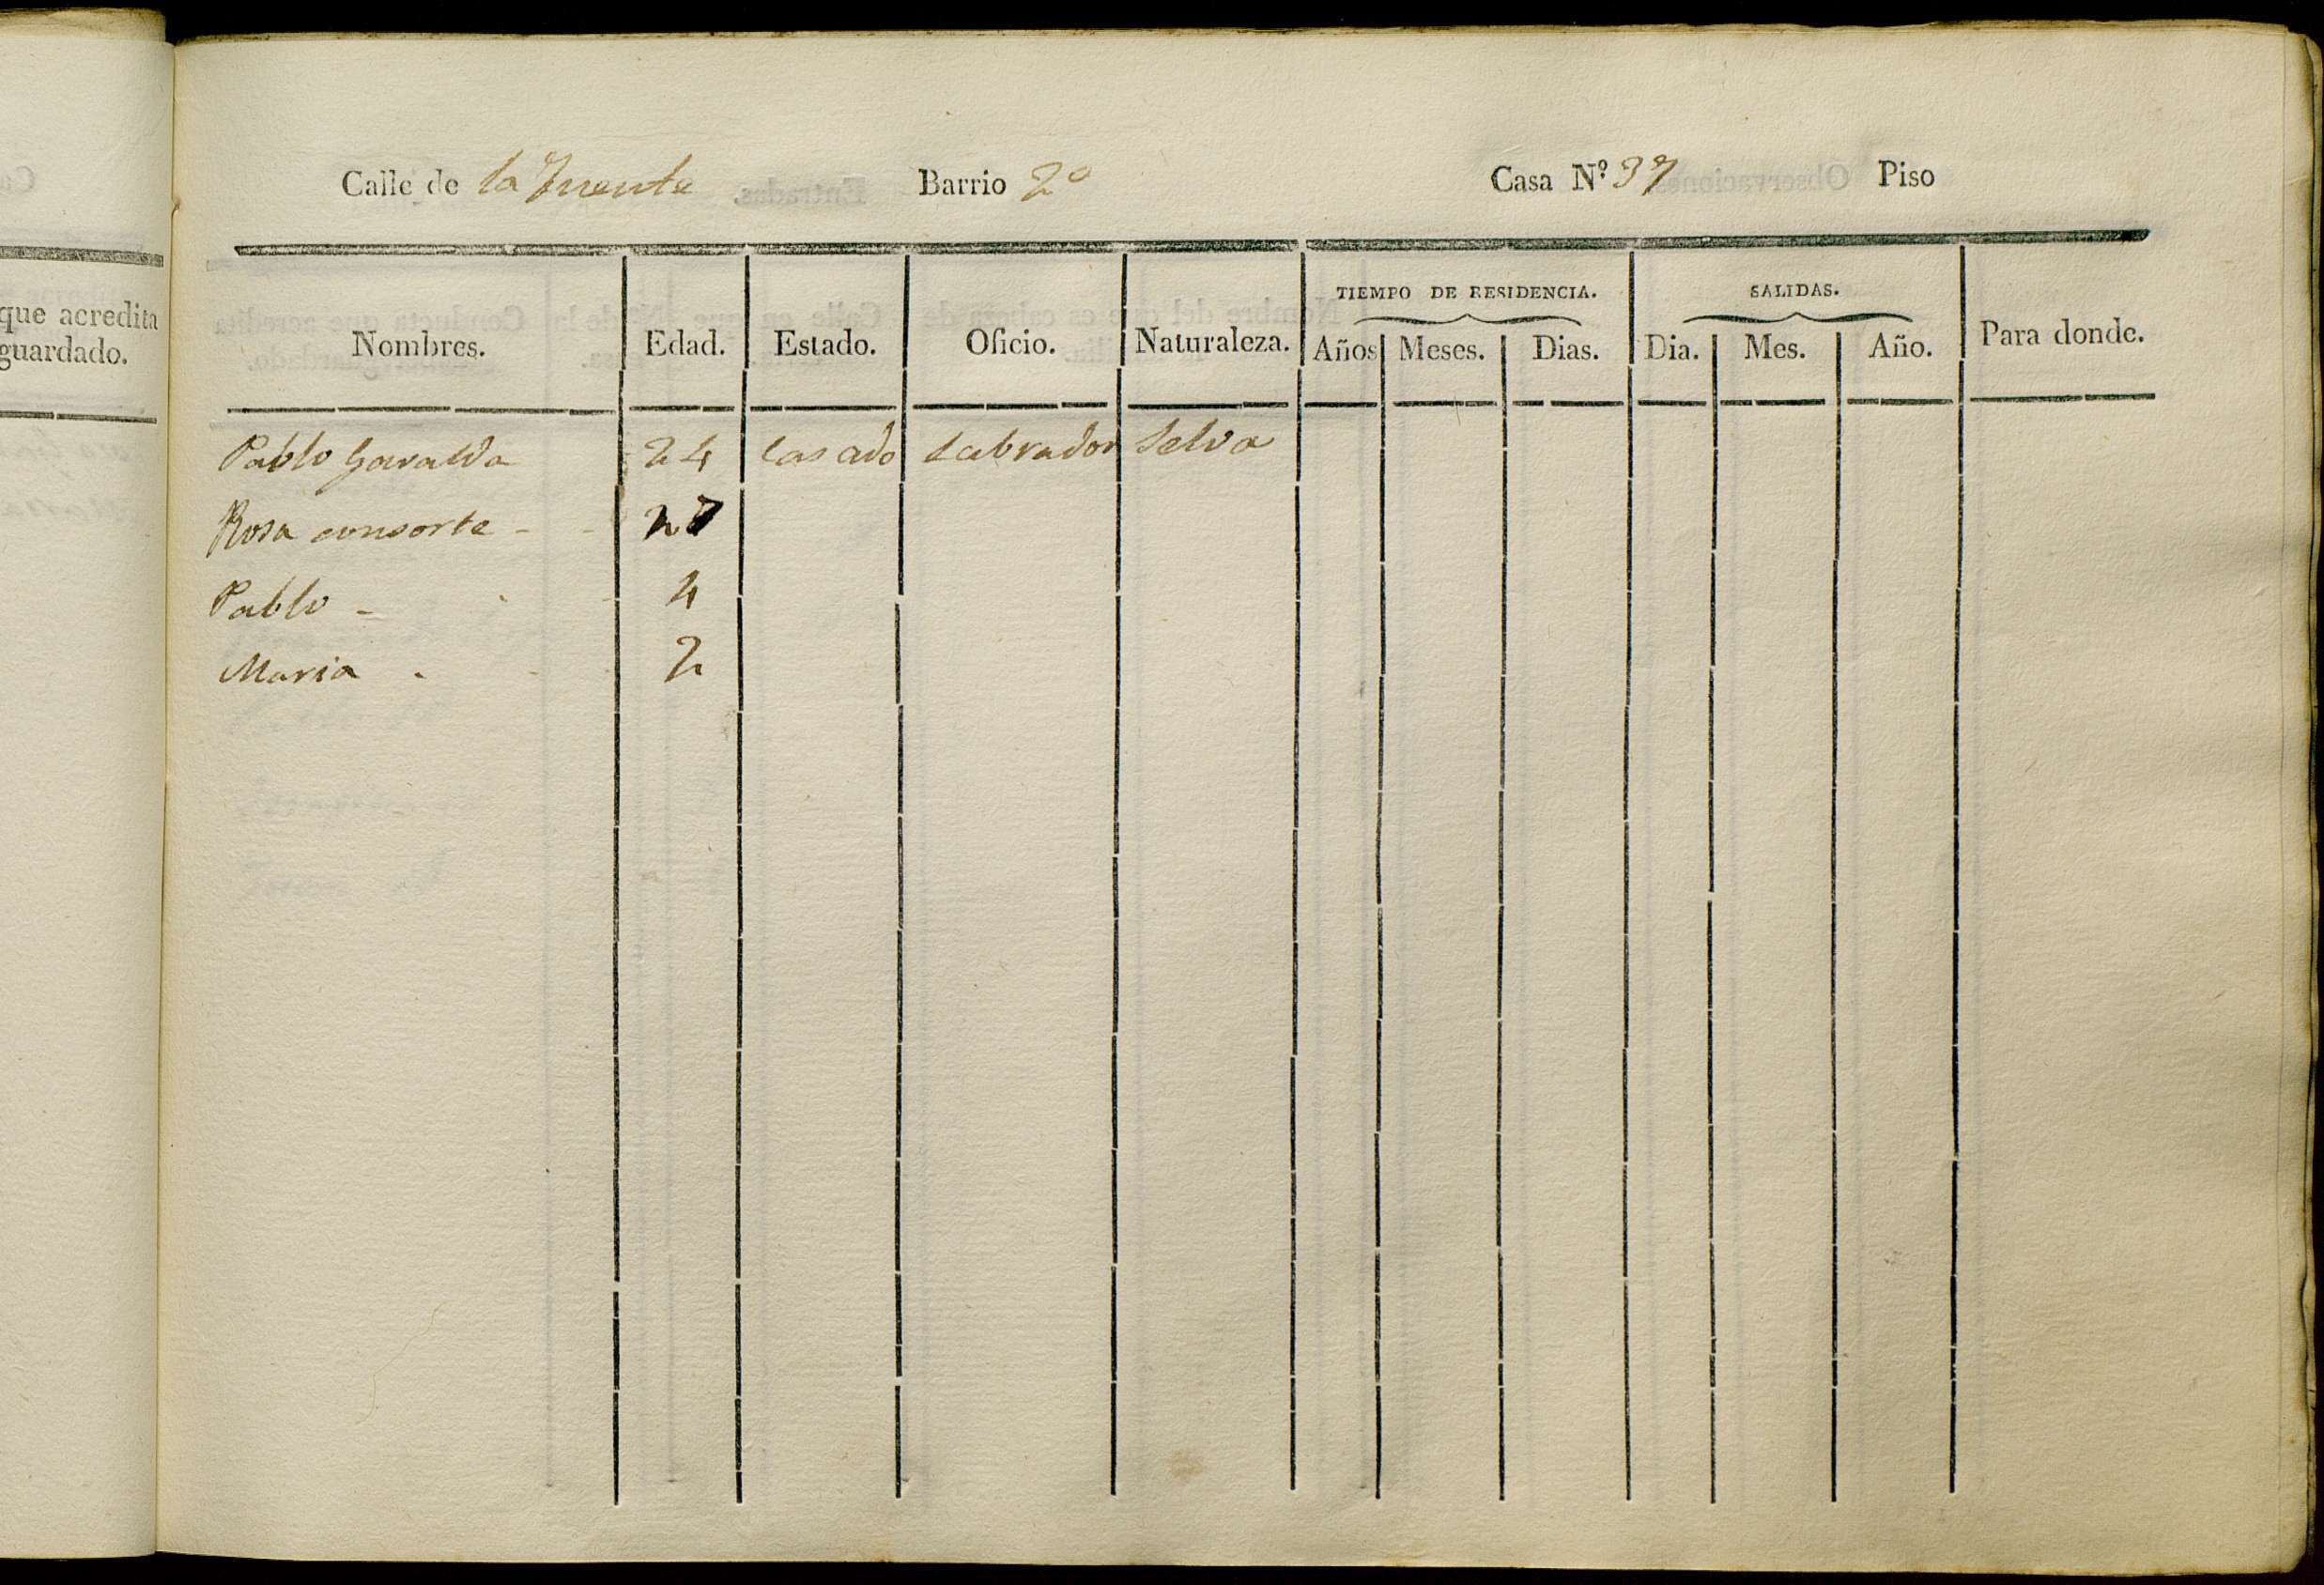 que acredita
guardado.
Calle de la Fuente Barrio 2º Casa Nº 37 Piso
Nombres. Edad. Estado. Oficio. Naturaleza. TIEMPO DE RESIDENCIA. Años Meses. Dias. SALIDAS. Dia. Mes. Año. Para donde.
Pablo Gavalda 24 Casado Labrador Selva
Rosa consorte - - 27
Pablo - - 4
Maria - - 2